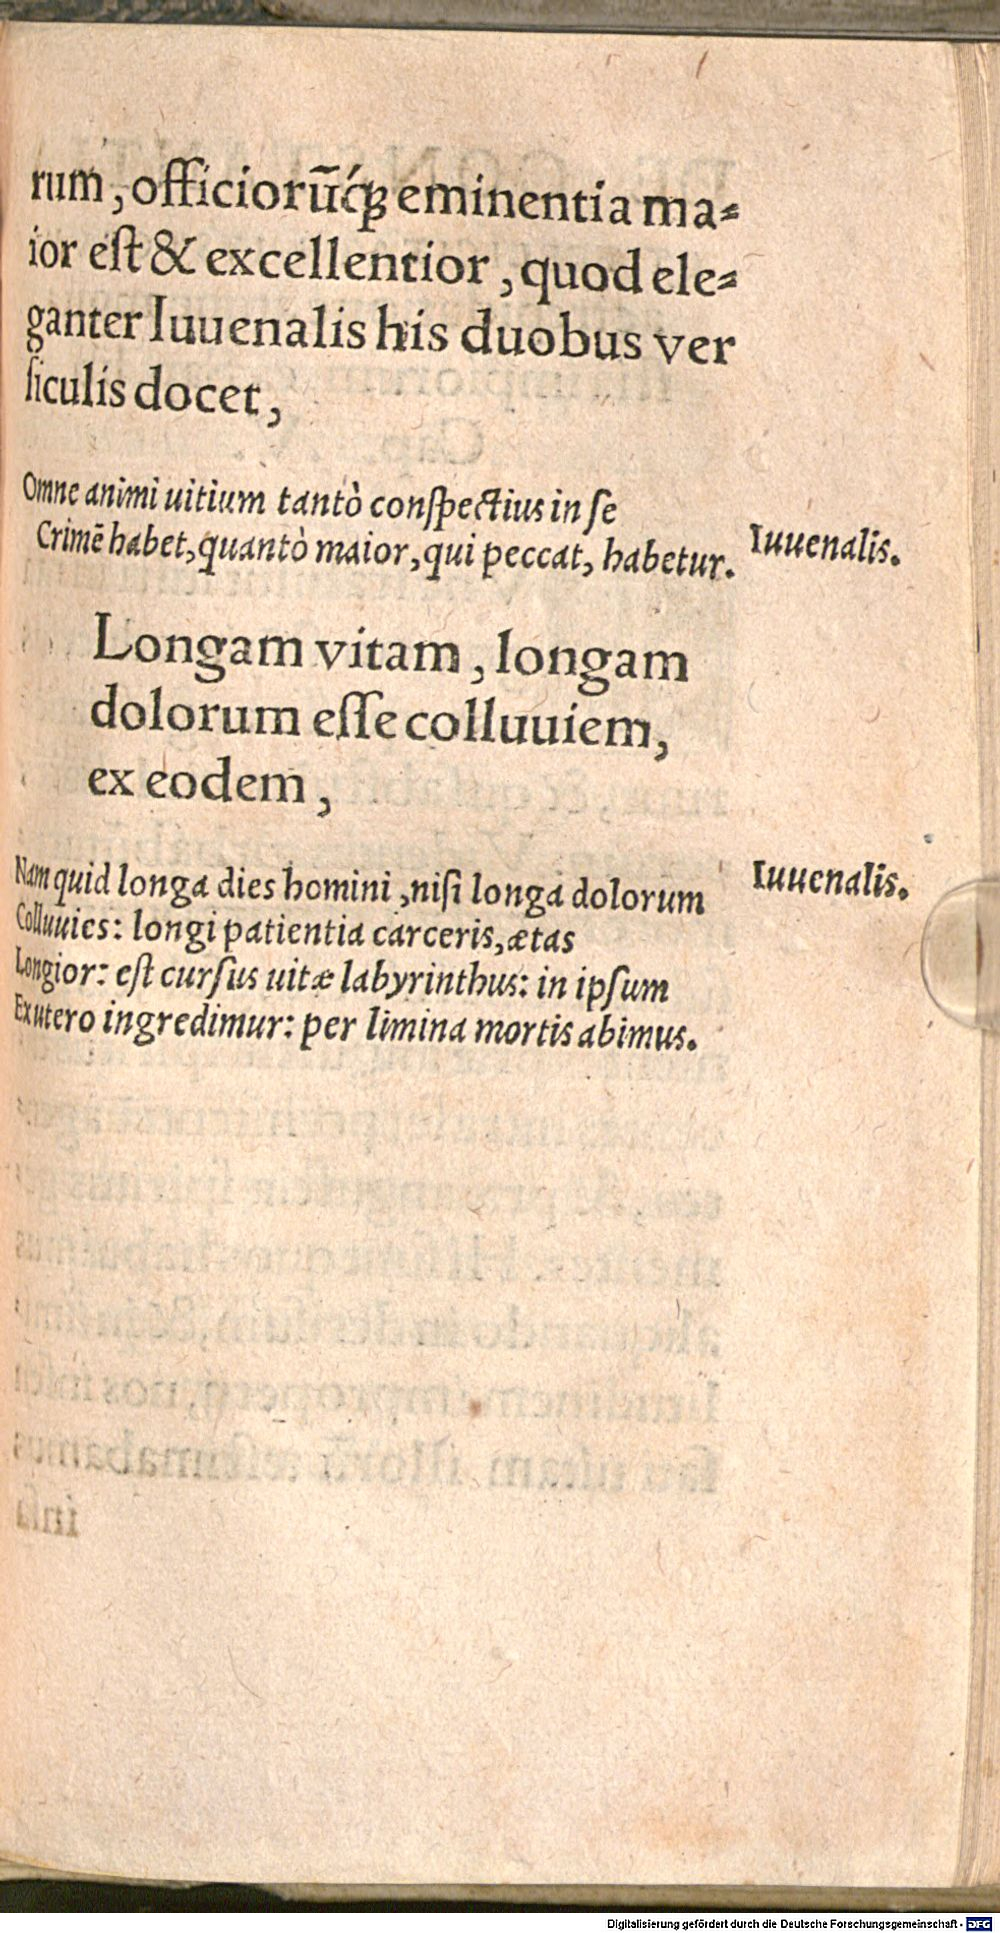 rum, officiorũq́ꝫ eminentia ma⸗
ior eſt & excellentior, quod ele⸗
ganter Iuuenalis his duobus ver
ſiculis docet,
Omne animi uitium tantò conſpectius in ſe
Crimẽ habet, quantò maior, qui peccat, habetur.
Iuuenalis.
Longam vitam, longam
dolorum eſſe colluuiem,
ex eodem,
Nam quid longa dies homini, niſi longa dolorum
Iuuenalis.
Colluuies: longi patientia carceris, ætas
Longior: eſt curſus uitæ labyrinthus: in ipſum
Ex utero ingredimur: per limina mortis abimus.
Digitalisierung gefördert durch die Deutsche Forschungsgemeinschaft - DFG